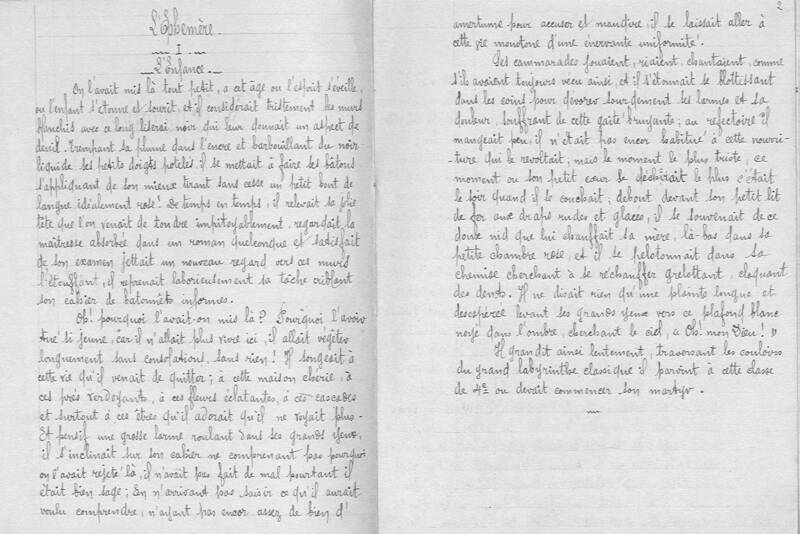 L'Ephemère.
I
L'Enfance.
On l'avait mis là tout petit, a cet âge ou l'esprit s'éveille,
ou l'enfant s'etonne et sourit, et il considerait tristement les murs
blanchis avec ce long liserai noir qui leur donnait un aspect de
deuil. trempant sa plume dans l'encre et barbouillant du noir
liquide ses petits doigts potelés il se mettait à faire ses bâtons
s'appliquant de son mieux tirant sans cesse un petit bout de
langue idéalement rose! De temps en temps, il relevait sa jolie
tête que l'on venait de tondre impitoyablement, regardait la
maîtresse absorbée dans un roman quelconque et satisfait
de son examen jettait un nouveau regard vers ces murs
l'étouffant, et reprenait laborieusement sa tâche criblant
son cahier de batonnêts informes.
Oh! pourquoi l'avait-on mis là? Pourquoi l'avoir
tué si jeune, car il n'allait plus vivre ici, il allait végéter
longuement sans consolations, sans rien! Il songeait à
cette vie qu'il venait de quitter; à cette maison cherie, à
ces prés verdoyants, à ces fleures eclatantes, à ces cascades
et surtout à ces êtres qu'il adorait qu'il ne voyait plus.
Et pensif une grosse larme roulant dans ses grands yeux,
il s'inclinait sur son cahier ne comprenant pas pourquoi
on l'avait rejeté là, il n'avait pas fait de mal pourtant il
était bien sage; En n'arrivant pas saisir ce qu'il aurait
voulu comprendre, n'ayant pas encor assez de bien d'
2
amertume pour accuser et maudire, il se laissait aller à
cette vie monotone d'une énervante uniformité.
Ses cammarades jouaient, riaient, chantaient, comme
s'ils avaient toujours vecu ainsi, et il s'étonnait se blottissant
dans les coins pour dévorer sourdement ses larmes et sa
douleur, souffrant de cette gaité bruyante; au refectoire il
mangeait peu, il n'était pas encor habitué à cette nourri-
ture qui le revoltait, mais le moment le plus triste, ce
moment ou son petit cœur se déchirait le plus c'était
le soir quand il se couchait; debout devant son petit lit
de fer aux draps rudes et glacés, il se souvenait de ce
doux nid que lui chauffait sa mère, là-bas dans sa
petite chambre rose, et il se pelotonnait dans sa
chemise cherchant à se réchauffer grelottant, claquant
des dents. Il ne disait rien qu'une plainte longue et
desespérée levant ses grands yeux vers ce plafond blanc
noyé dans l'ombre, cherchant le ciel, « Oh! mon Dieu! »
Il grandit ainsi lentement, traversant les couloirs
du grand labyrinthe classique il parvint à cette classe
de 4e ou devait commencer son martyr.